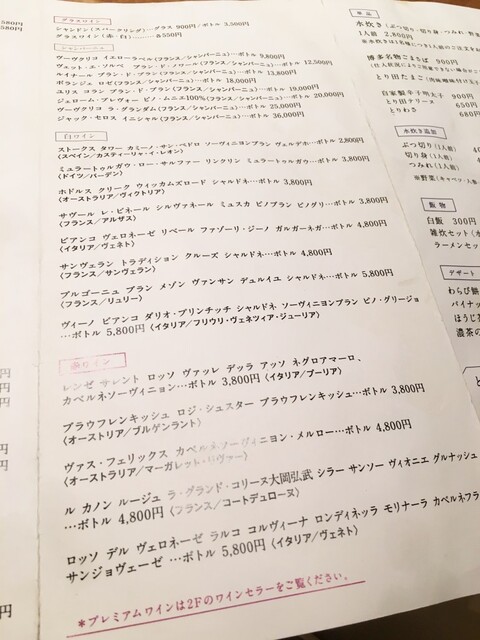 580円
580円
グラスワイン
シャンドン(スパークリング)…グラス 900円/ボトル 3,500円
グラスワイン(赤・白)……各550円
シャンパーニュ
ヴーヴクリコ イエローラベル(フランス/シャンパーニュ)…ボトル 9,800円
ヴェット・エ・ソルベ ブラン・ド・ノワール(フランス/シャンパーニュ)…ボトル 12,500円
ルイナール ブラン・ド・ブラン(フランス/シャンパーニュ)…ボトル 13,800円
ボランジェ ロゼ(フランス/シャンパーニュ)…ボトル 18,000円
ユリス コラン ブラン・ド・ブラン(フランス/シャンパーニュ)…ボトル 19,000円
ジェローム・プレヴォー ピノ・ムニエ100%(フランス/シャンパーニュ)…ボトル 20,000円
ヴーヴクリコ ラ・グランダム(フランス/シャンパーニュ)…ボトル 25,000円
ジャック・セロス イニシャル(フランス/シャンパーニュ)…ボトル 36,000円
白ワイン
ストークス タワー カミーノ・サン・ペドロ ソーヴィニヨンブラン ヴェルデホ…ボトル 2,800円
(スペイン/カスティーリャ・イ・レオン)
ミュラートゥルガウ・ロー・サルファー リンクリン ミュラートゥルガウ…ボトル 3,800円
(ドイツ/バーデン)
ホドルス クリーク ウィッカムズロード シャルドネ…ボトル 3,800円
(オーストラリア/ヴィクトリア)
サヴール レ・ピネール シルヴァネール ミュスカ ピノブラン ピノグリ…ボトル 3,800円
(フランス/アルザス)
ビアンコ ヴェロネーゼ リベール ファゾーリ・ジーノ ガルガーネガ…ボトル 4,800円
(イタリア/ヴェネト)
サンヴェラン トラディション クルーズ シャルドネ…ボトル 4,800円
(フランス/サンヴェラン)
ブルゴーニュ ブラン メゾン ヴァンサン デュルイユ シャルドネ…ボトル 5,800円
(フランス/リュリー)
ヴィーノ ビアンコ ダリオ・プリンチッチ シャルドネ ソーヴィニヨンブラン ピノ・グリージョ
…ボトル 5,800円(イタリア/フリウリ・ヴェネツィア・ジューリア)
赤ワイン
レンゼ サレント ロッソ ヴァッレ デッラ アッソ ネグロアマーロ、
カベルネソーヴィニヨン…ボトル 3,800円(イタリア/プーリア)
ブラウフレンキッシュ ロジ・シュスター ブラウフレンキッシュ…ボトル 3,800円
(オーストリア/ブルゲンラント)
ヴァス・フェリックス カベルネソーヴィニヨン・メルロー…ボトル 4,800円
(オーストラリア/マーガレット・リヴァー)
ル カノン ルージュ ラ・グランド・コリーヌ大岡弘武 シラー サンソー ヴィオニエ グルナッシュ
…ボトル 4,800円(フランス/コートデュローヌ)
ロッソ デル ヴェロネーゼ ラルコ コルヴィーナ ロンディネッラ モリナーラ カベルネフラ
サンジョヴェーゼ …ボトル 5,800円(イタリア/ヴェネト)
*プレミアムワインは2Fのワインセラーをご覧ください。
単品
水炊き(ぶつ切り・切り身・つみれ・野菜
1人前 2,800円
博多名物ごまさば 900円
とり田たまご
自家製辛子明太子 900円
とり田テリーヌ 650円
とりわさ 680円
水炊き追加
ぶつ切り(1人前)
切り身(1人前)
つみれ(1人前)
※野菜(キャベツ・人参
飯物
白飯 300円
雑炊セット(
ラーメンセット
デザート
わらび餅
パイナッ
ほうじ茶
濃茶の
円
円
円
円
円
円